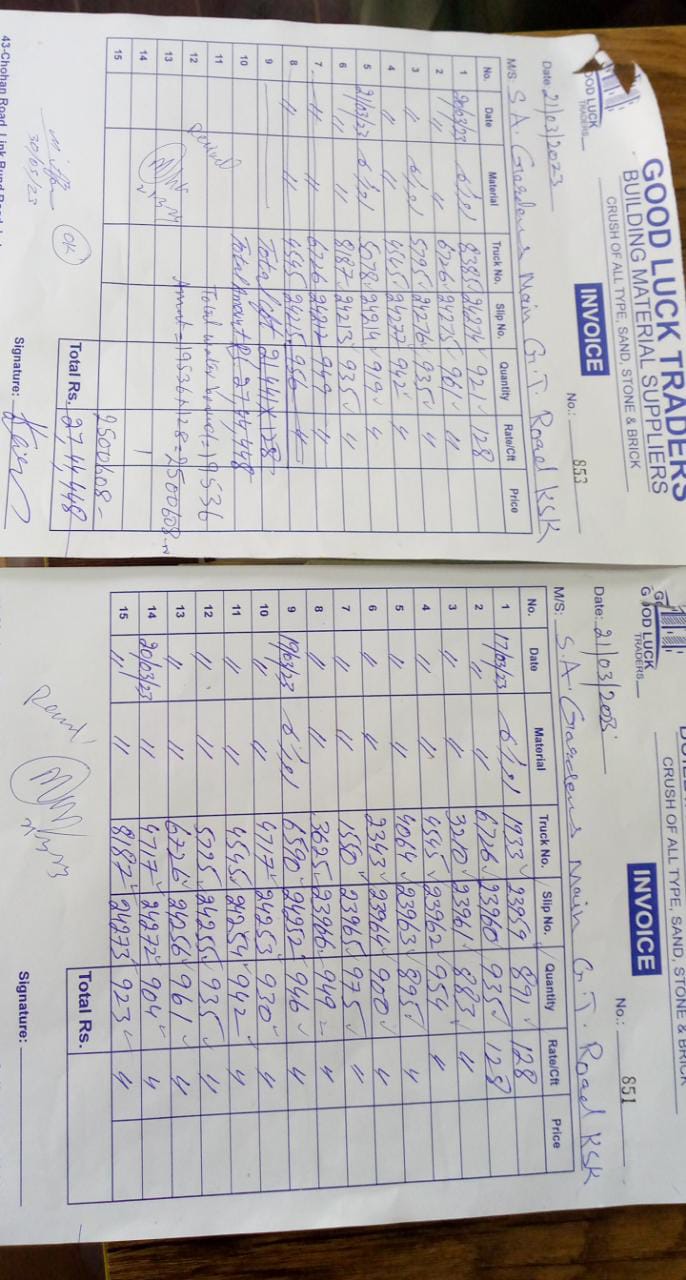 GOOD LUCK TRADERS
BUILDING MATERIAL SUPPLIERS
CRUSH OF ALL TYPE, SAND, STONE & BRICK
OOD LUCK
TRADERS
INVOICE
No.: 853
Date 21/03/2023
M/S: S.A. Gardens Main G.T. Road KSK
No. Date Material Truck No. Slip No. Quantity Rate/Cft Price
1 20/03/23 8385 24274 921 128
2 " " 6726 24275 961 "
3 " 5795 24276 935 "
4 " " 4545 24277 942 "
5 21/03/23 5078 24214 919 "
6 " " 8187 24213 935 "
7 " " 6726 24212 949 "
8 " " 4545 24215 956 "
9 Total qft 21441 x 128
10 Total Amount Rs. 27,44,448
11 Total 19536
12 Amount = 19536 x 128 = 2500608
13
14
15 2500608-
Total Rs. 27,44,448
OK
30/03/23
Signature:
43-Chohan Road, Link Bund Road,
CRUSH OF ALL TYPE, SAND, STONE & BRICK
G OOD LUCK
TRADERS
INVOICE
No.: 851
Date: 21/03/2023
M/S: S.A. Gardens Main G.T. Road KSK
No. Date Material Truck No. Slip No. Quantity Rate/Cft Price
1 17/03/23 1933 23959 891 128
2 " " 6726 23960 935 128
3 " " 3210 23961 883 "
4 " " 4545 23962 954 "
5 " " 4064 23963 895 "
6 " " 2343 23964 900 "
7 " " 1550 23965 975 "
8 " " 3625 23966 949 "
9 19/03/23 6590 24252 946 "
10 " " 4717 24253 930 "
11 " " 4545 24254 942 "
12 " " 5795 24255 935 "
13 " " 6726 24256 961 "
14 20/03/23 " 4717 24272 904 "
15 " " 8187 24273 923 "
Total Rs.
Signature: